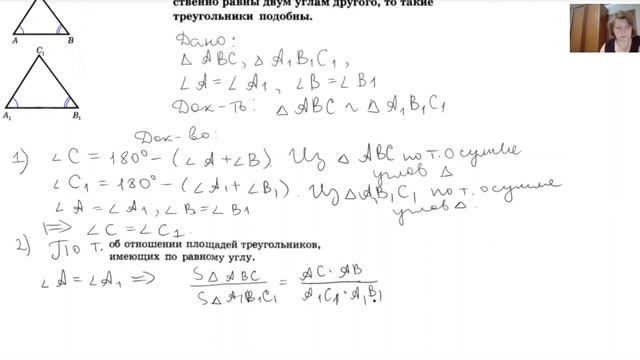 ственно равны двум углам другого, то такие
треугольники подобны.
A B
C₁
A₁ B₁
Дано:
△ ABC, △ A₁B₁C₁,
∠A = ∠A₁, ∠B = ∠B₁
Док-ть: △ ABC ~ △ A₁B₁C₁
Док-во:
1) ∠C = 180° − (∠A + ∠B) Из △ ABC по т. о сумме углов △
∠C₁ = 180° − (∠A₁ + ∠B₁). Из △ A₁B₁C₁ по т. о сумме углов △.
∠A = ∠A₁, ∠B = ∠B₁
⟹ ∠C = ∠C₁.
2) По т. об отношении площадей треугольников,
имеющих по равному углу.
∠A = ∠A₁ ⟹ S△ABC / S△A₁B₁C₁ = AC · AB / A₁C₁ · A₁B₁